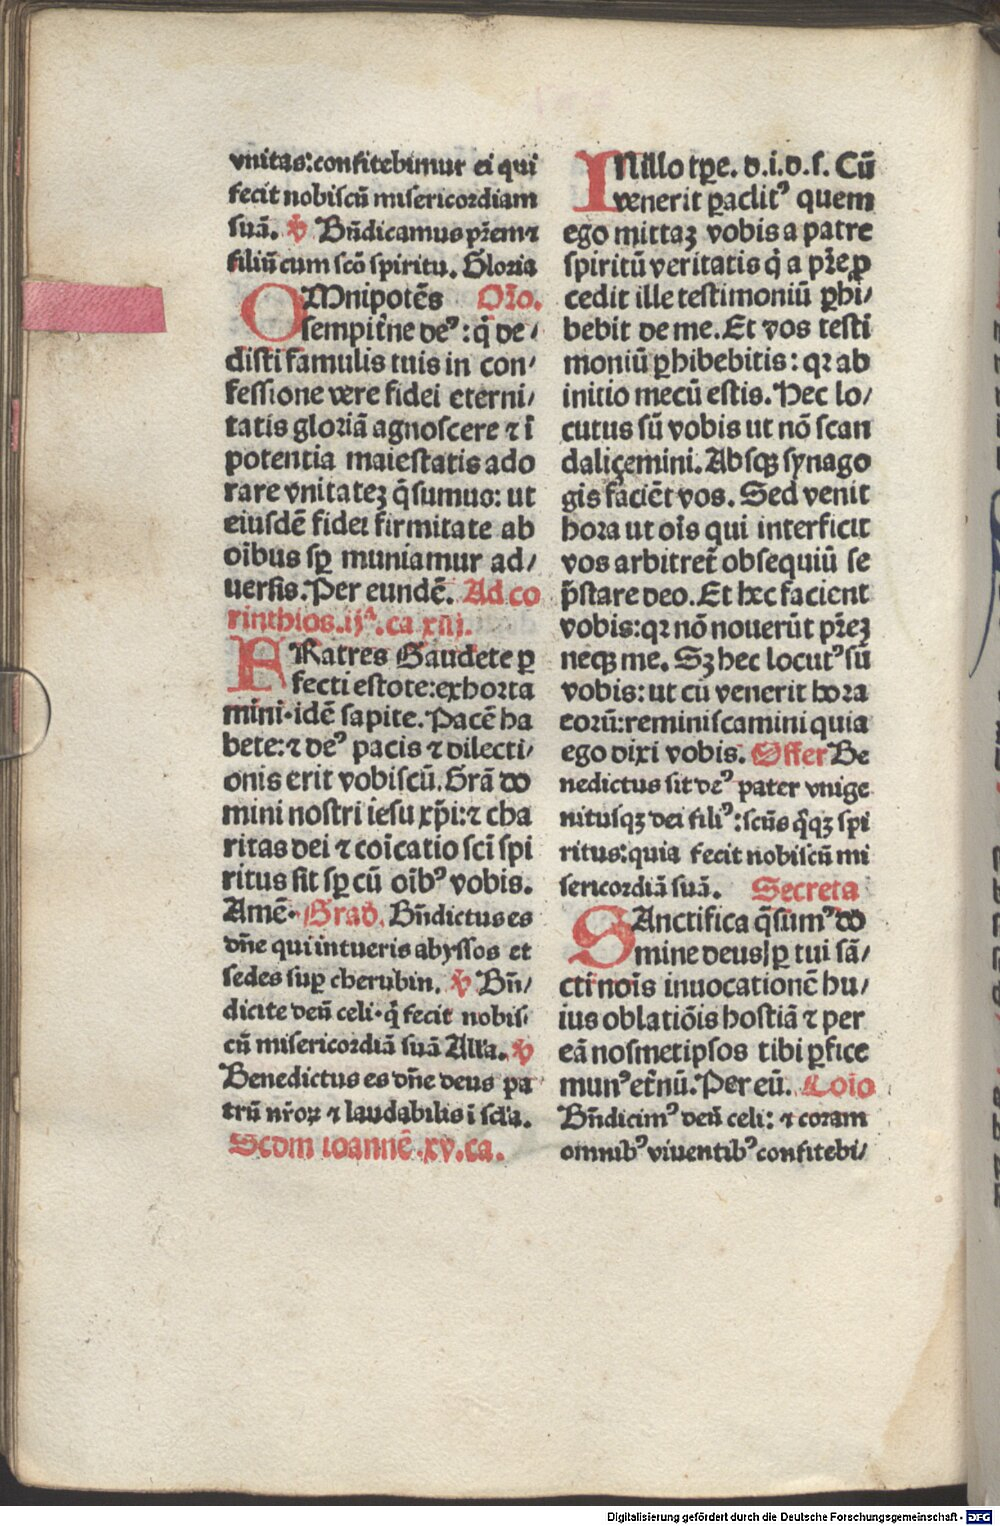 vnitas:confitebimur ei qui
fecit nobiscū misericordiam
suā. ℣ Bn̄dicamus pr̄em ⁊
filiū cum scō spiritu. Gloria
OMnipotēs Or̄o.
sempit̄ne deꝰ: q̄ de⸗
disti famulis tuis in con⸗
fessione vere fidei eterni⸗
tatis gloriā agnoscere ⁊ ī
potentia maiestatis ado
rare vnitateꝫ q̄sumus: ut
eiusdē fidei firmitate ab
oībus sꝑ muniamur ad⸗
uersis. Per eundē. Ad co
rinthios.ijª.ca xiij.
FRatres Gaudete ꝑ
fecti estote: exhorta
mini·idē sapite. Pacē ha
bete: ⁊ deꝰ pacis ⁊ dilecti⸗
onis erit vobiscū. Grā do
mini nostri iesu xp̄i: ⁊ cha
ritas dei ⁊ coīcatio scī spi
ritus sit sꝑ cū oībꝰ vobis.
Amē· Grad. Bn̄dictus es
dn̄e qui intueris abyssos et
sedes suꝑ cherubin. ℣ Bn̄⸗
dicite deū celi·q̇ fecit nobis⸗
cū misericordiā suā Alľa. ℣
Benedictus es dn̄e deus pa
trū nr̄oꝝ ⁊ laudabilis ī scľa.
Scdm ioannē.xv.ca.
INillo tꝑe. d.i.d.s. Cū
venerit ꝑaclitꝰ quem
ego mittaꝫ vobis a patre
spiritū veritatis q̇ a pr̄e ꝓ
cedit ille testimoniū ꝑhi⸗
bebit de me. Et vos testi
moniū ꝑhibebitis: qꝛ ab
initio mecū estis. Hec lo⸗
cutus sū vobis ut nō scan
daliçemini. Absqꝫ synago
gis faciēt vos. Sed venit
hora ut oīs qui interficit
vos arbitret̄ obsequiū se
p̄stare deo. Et hec facient
vobis: qꝛ nō nouerūt pr̄eꝫ
neqꝫ me. Sꝫ hec locutꝰ sū
vobis: ut cū venerit hora
eorū: reminiscamini quia
ego dixi vobis. Offer Be
nedictus sit deꝰ pater vnige
nitusqꝫ dei filiꝰ: scūs q̄qꝫ spi
ritus: quia fecit nobiscū mi
sericordiā suā. Secreta
SAnctifica q̄sumꝰ do
mine deus ꝑ tui sā⸗
cti noīs inuocationē hu⸗
ius oblatiōis hostiā ⁊ per
eā nosmetipsos tibi ꝑfice
munꝰ et̄nū. Per eū. Cōio
Bn̄dicimꝰ deū celi: ⁊ coram
omnibꝰ viuentibꝰ confitebi⸗
Digitalisierung gefördert durch die Deutsche Forschungsgemeinschaft - DFG